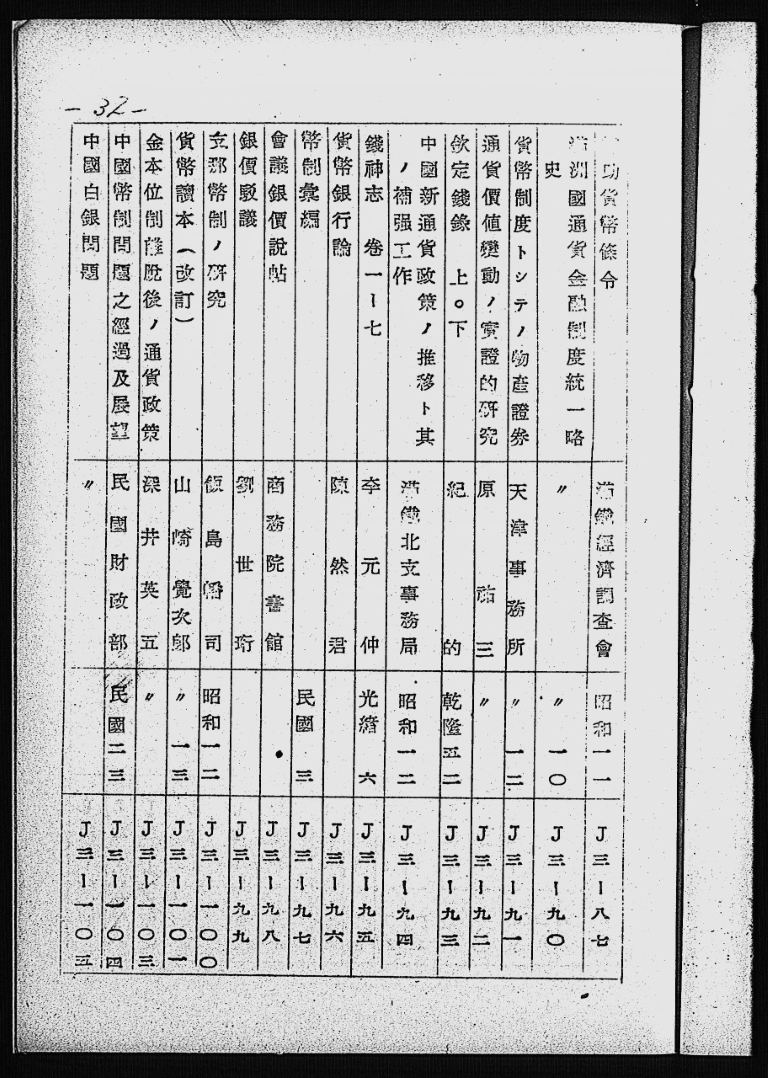 - 32 -
功貨幣條令 滿鐵經濟調査會 昭和一一 J三―八七
滿洲國通貨金融制度統一略史 〃 〃 一〇 J三―九〇
貨幣制度トシテノ物產證券 天津事務所 〃 一二 J三―九一
通貨價値變動ノ實證的硏究 原祐三 〃 J三―九二
欽定錢錄 上〇下 紀的 乾隆五二 J三―九三
中國新通貨政策ノ推移ト其
ノ補强工作 滿鐵北支事務局 昭和一二 J三―九四
錢神志 卷一―七 李元仲 光緖六 J三―九五
貨幣銀行論 陳然君 J三―九六
幣制彙編 民國三 J三―九七
會議銀價說帖 商務院書館 J三―九八
銀價駁議 劉世珩 J三―九九
支那幣制ノ硏究 飯島幡司 昭和一二 J三―一〇〇
貨幣讀本（改訂） 山崎覺次郞 〃 一三 J三―一〇一
金本位制離脫後ノ通貨政策 深井英五 〃 J三―一〇三
中國幣制問題之經過及展望 民國財政部 民國二三 J三―一〇四
中國白銀問題 〃 J三―一〇五